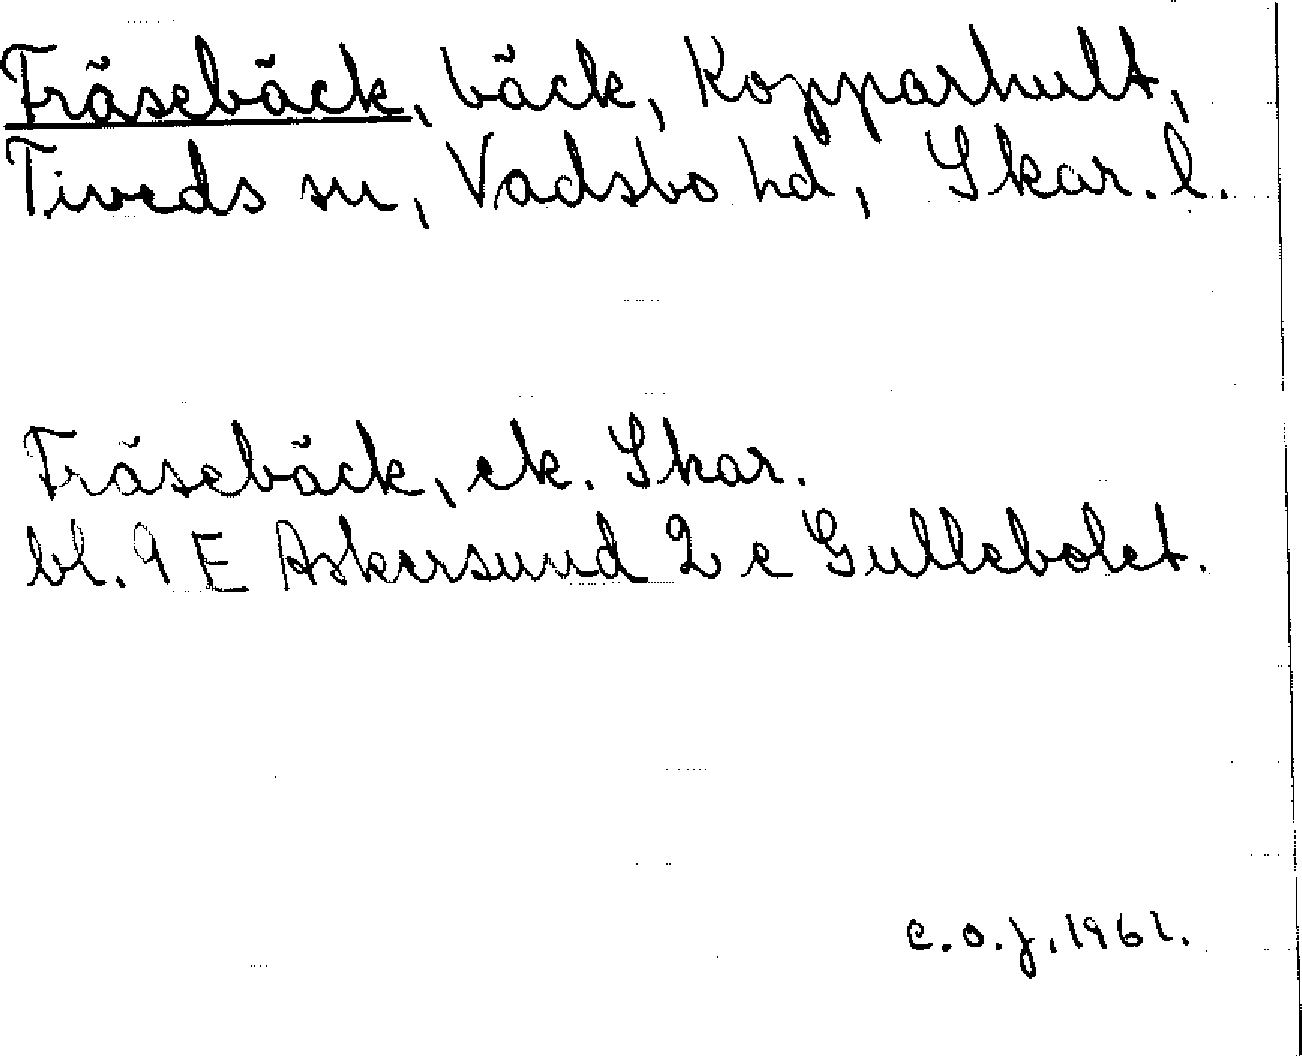 Fräsebäck, bäck, Kopparhult,
Tiveds sn, Vadsbo hd, Skar. l.
Fräsebäck, ek. Skar.
bl. 9 E Askersund 2 c Gullebolet.
C.O.J. 1961.